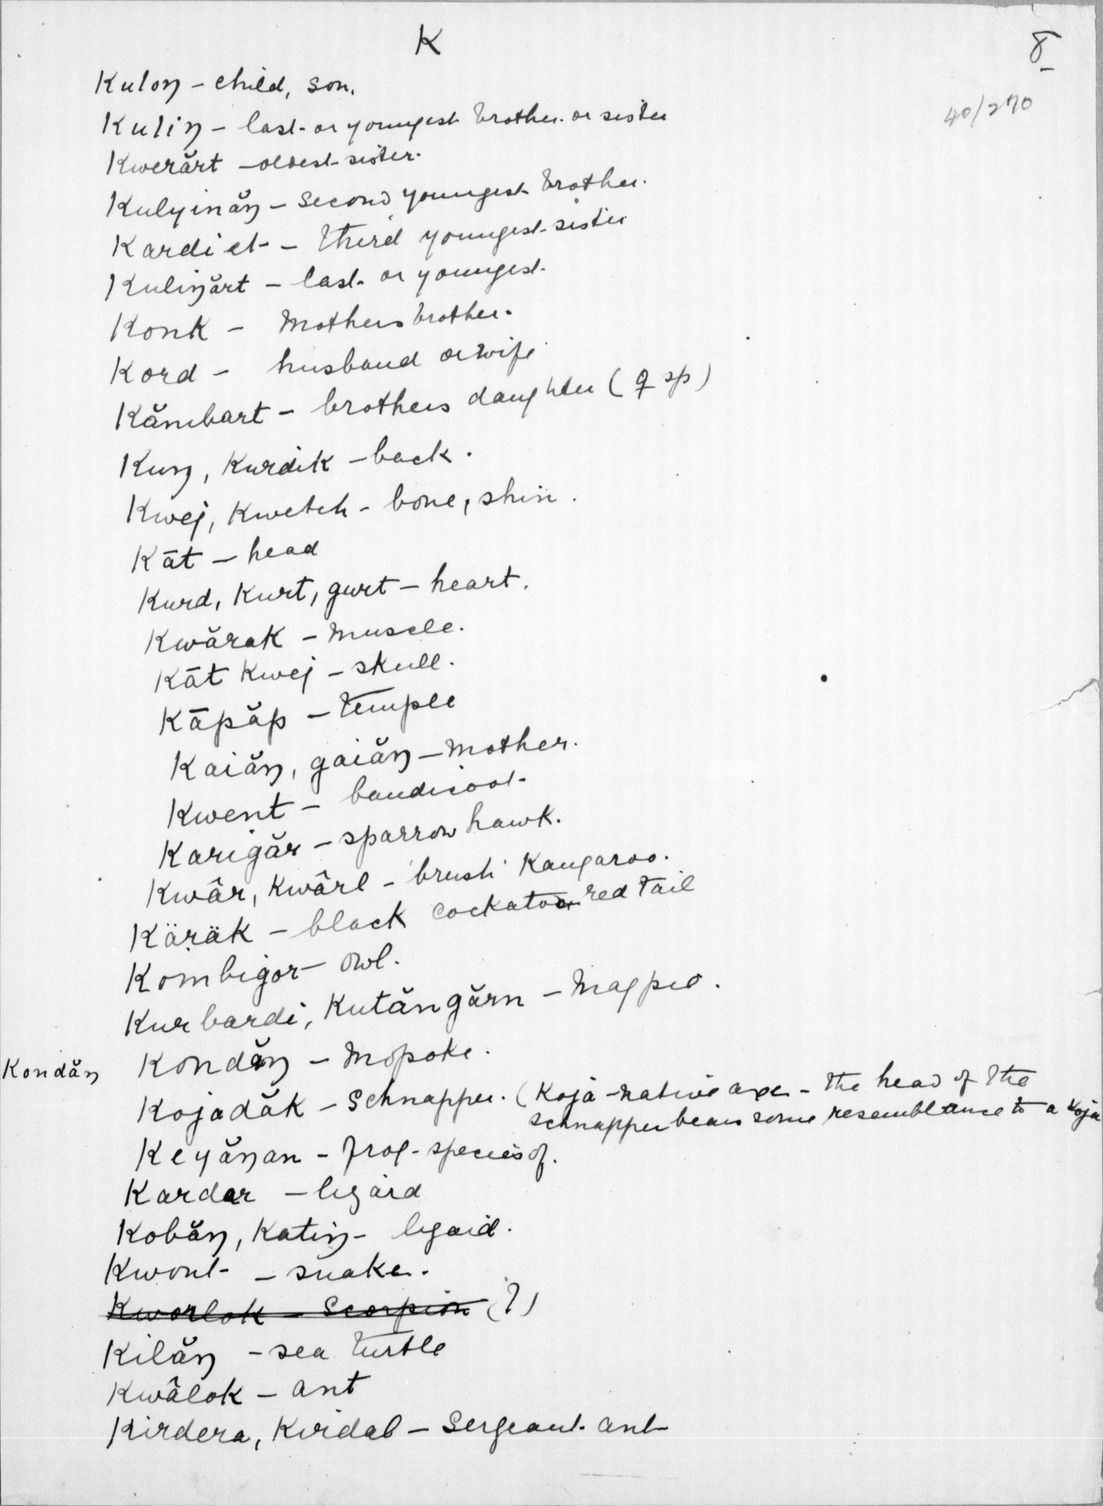 K
8
40/270
Kuloŋ - child, son.
Kuliŋ - last or youngest brother or sister
Kwerărt - oldest sister.
Kulyinăŋ - second youngest brother.
Kardiet - third youngest sister
Kuliŋărt - last or youngest.
Konk - Mothers brother.
Kord - husband or wife
Kămbart - brothers daughter (
Kuŋ, Kurdik - back.
Kwej, Kwetch - bone, shin.
Kāt - head
Kurd, Kurt, gurt - heart.
Kwărak - muscle.
Kāt Kwej - skull.
Kāpăp - temple
Kaiăŋ, gaiăŋ - mother.
Kwent - bandicoot.
Karigăr - sparrow hawk.
Kwâr, Kwârl - 'brush' Kangaroo.
Käräk - black cockatoo red tail
Kombigor - owl.
Kurbardi, Kutăngărn - Magpie.
Kondăŋ Kondăŋ - Mopoke.
Kojadăk - Schnapper. (Koja - native axe - the head of the
schnapper bears some resemblance to a Koja
Keyăŋan - frog - species of.
Kardar - lizard
Kobăŋ, Katiŋ - lizard.
Kwont - snake.
Kworlok - Scorpion (?)
Kilăŋ - sea turtle
Kwâlok - ant
Kirdera, Kiridal - Sergeant ant